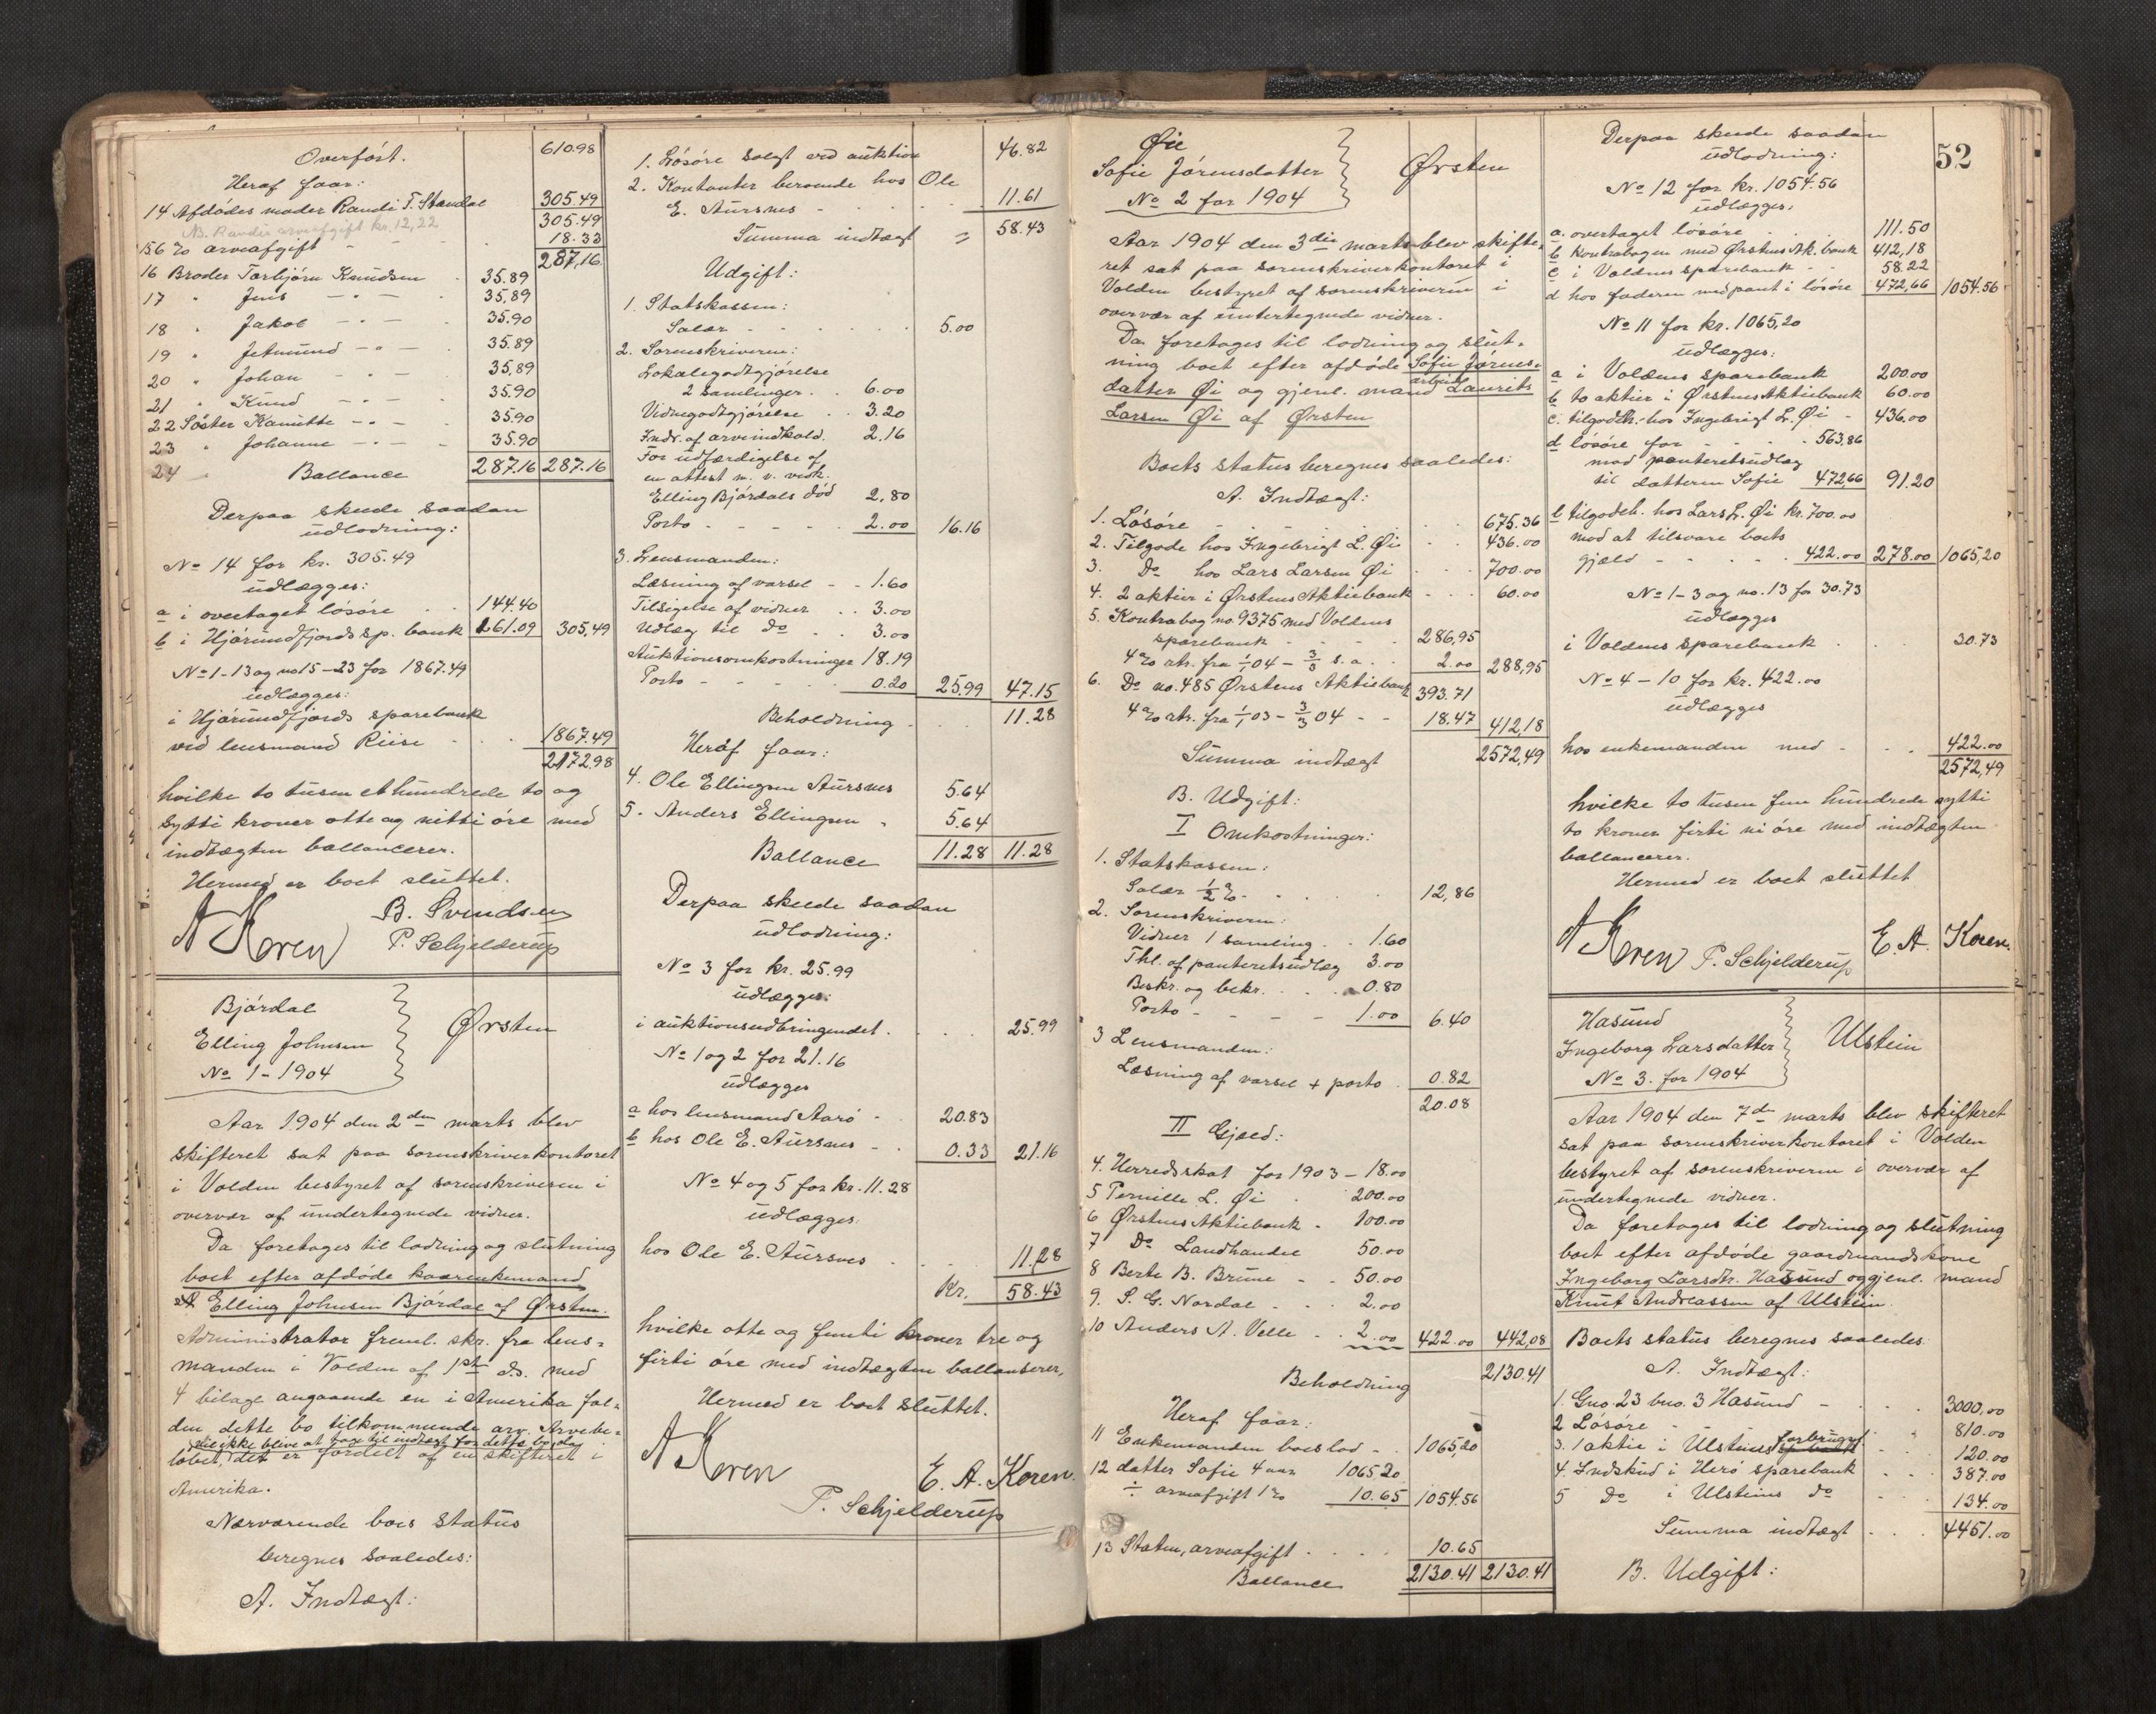 Overført. 610.98
Heraf faar:
14 Afdødes moder Randi T. Standal 305.49
305.49
NB. Randis arveafgift kr. 12,22
15 6 % arveafgift - - - 18.33
287,16
16 Broder Torbjørn Knudsen 35.89
17 " Jens -"- 35.89
18 " Jakob -"- 35.90
19 " Jetmund -"- 35.89
20 " Johan -"- 35,89
21 " Knud -"- 35.90
22 Søster Kanutte -"- 35.90
23 " Johanne -"- 35.90
24 Ballance 287.16 287.16
Derpaa skede saadan
udlodning:
No 14 for kr. 305.49
udlægges:
a i overtaget løsøre . . 144.40
b i Hjørundfjords sp. bank 161.09 305,49
No 1-13 og no 15-23 for 1867.49
udlægges:
i Hjørundfjords sparebank
ved lensmand Riise - . . 1867.49
2172,98
hvilke to tusen et hundrede to og
sytti kroner otte og nitti øre med
indtægten ballancerer.
Hermed er boet sluttet.
A Koren B. Svendsen
P. Schjelderup
Bjørdal
Elling Johnsen
No 1 - 1904
Ørsten
Aar 1904 den 2den marts blev
skifteret sat paa sorenskriverkontoret
i Volden bestyret af sorenskriveren i
overvær af undertegnede vidner.
Da foretoges til lodning og slutning
boet efter afdøde kaarenkemand
Elling Johnsen Bjørdal af Ørsten.
Administrator freml. skr. fra lens=
manden i Volden af 1ste d.s. med
4 bilage angaaende en i Amerika fal=
den dette bo tilkommende arv. Arvebe=
vil ikke blive at tage til indtægt for dette bo, da
løbet, det er fordelt af en skifteret i
Amerika.
Nærværende boes status
beregnes saaledes:
A. Indtægt:
1. Løsøre solgt ved auktion 46.82
2. Kontanter beroende hos Ole
E. Aursnes - . . . . 11.61
Summa indtægt = 58.43
Udgift:
1. Statskassen:
Salær - . . . . . 5.00
2. Sorenskriveren:
Lokalegodtgjørelse
2 samlinger . . 6.00
Vidnegodtgjørelse . . 3.20
Indr. af arveindkald. 2.16
For udfærdigelse af
en attest m. v. vedk.
Elling Bjørdals død 2.80
Porto - - - - - 2.00 16.16
3. Lensmanden:
Læsning af varsel - - 1.60
Tilsigelse af vidner . . 3.00
Udlæg til do . . 3.00
Auktionsomkostninger 18.19
Porto - - - - - 0.20 25.99 47.15
Beholdning - . . . 11.28
Heraf faar:
4. Ole Ellingsen Aursnes 5.64
5. Anders Ellingsen " 5.64
Ballance 11.28 11.28
Derpaa skede saadan
udlodning:
No 3 for kr. 25.99
udlægges:
i auktionsudbringendet . . . . 25.99
No 1 og 2 for 21.16
udlægges
a hos lensmand Aarø - 20.83
b hos Ole E. Aursnes - . 0.33 21.16
No 4 og 5 for kr. 11.28
udlægges.
hos Ole E. Aursnes . . . 11,28
Kr. 58.43
hvilke otte og femti kroner tre og
firti øre med indtægten ballanserer,
Hermed er boet sluttet.
A Koren E. A. Koren.
P. Schjelderup
Øie
Sofie Jørensdatter
No 2 for 1904
Ørsten
Aar 1904 den 3die marts blev skifte=
ret sat paa sorenskriverkontoret i
Volden bestyret af sorenskriveren i
overvær af undertegnede vidner.
Da foretages til lodning og slut=
ning boet efter afdøde Sofie Jørens=
datter Øi og gjenl. mand arbeid. Laurits
Larsen Øi af Ørsten
Boets status beregnes saaledes:
A. Indtægt:
1. Løsøre - - - . . 675.36
2. Tilgode hos Ingebrigt L. Øi . . 436.00
3. Do hos Lars Larsen Øi . . . 700.00
4. 2 aktier i Ørstens Aktiebank - - . 60.00
5. Kontrabog no. 9375 med Voldens
sparebank - . . . 286,95
4 % rtr. fra 1/1 04 - 3/3 s. a. . . 2.00 288,95
6. Do no. 485 Ørstens Aktiebank 393.71
4 % rtr. fra 1/1 03 - 3/3 04 - - 18.47 412,18
Summa indtægt 2572,49
B. Udgift:
I Omkostninger:
1. Statskassen:
Salær 1/2 % - . . . . 12,86
2. Sorenskriveren:
Vidner 1 samling . . 1.60
Thl. af panteretsudlæg 3.00
Beskr. og bekr. . . . 0.80
Porto - - - - 1.00 6.40
3 Lensmanden:
Læsning af varsel + porto . 0.82
20.08
II Gjæld:
4. Herredsskat for 1903 - 18.00
5 Pernille L. Øi . 200.00
6 Ørstens Aktiebank - 100.00
7 Do Landhandel 50.00
8 Berte B. Brune - - 50.00
9. S. G. Nordal - . . 2.00
10 Anders A. Velle . . 2.00 422.00 442,08
Beholdning 2130.41
Heraf faar:
11 Enkemanden boeslod - . 1065,20
12 datter Sofie 4 aar 1065,20
÷ arveafgift 1 % 10.65 1054.56
13 Staten, arveafgift . . . . 10.65
Ballance 2130.41 2130.41
52
Derpaa skede saadan
udlodning:
No 12 for kr. 1054.56
udlægges:
a. overtaget løsøre . . 111.50
b kontrabogen med Ørstens Ak. bank 412,18
c i Voldens sparebank - - 58.22
d hos faderen mod pant i løsøre 472,66 1054.56
No 11 for kr. 1065,20
udlægges:
a i Voldens sparebank 200.00
b to aktier i Ørstens Aktiebank 60.00
c. tilgodeh. hos Ingebrigt L. Øi - 436.00
d løsøre for - - - - 563,86
mod panteretsudlæg
til datteren Sofie 472,66 91.20
e tilgodeh. hos Lars L. Øi kr. 700.00
mod at tilsvare boets
gjæld - - . . . 422.00 278.00 1065,20
No 1-3 og no. 13 for 30.73
udlægges
i Voldens sparebank . . . 30.73
No 4 - 10 for kr. 422.00
udlægges
hos enkemanden med - . . 422.00
2572,49
hvilke to tusen fem hundrede sytti
to kroner firti ni øre med indtægten
ballancerer.
Hermed er boet sluttet
A Koren P. Schjelderup E. A. Koren.
Hasund
Ingeborg Larsdatter
No 3. for 1904
Ulstein
Aar 1904 den 7de marts blev skifteret
sat paa sorenskriverkontoret i Volden
bestyret af sorenskriveren i overvær af
undertegnede vidner.
Da foretages til lodning og slutning
boet efter afdøde gaardmandskone
Ingeborg Larsdtr. Hasund og gjenl. mand
Knut Andreassen af Ulstein.
Boets status beregnes saaledes.
A. Indtægt:
1. Gno. 23 bno. 3 Hasund - . . . 3000.00
2 Løsøre - " 810.00
3. 1 aktie i Ulsteins forbrugsf. - . . 120.00
4. Indskud i Herø sparebank . . . 387.00
5 Do i Ulsteins do - . 134.00
Summa indtægt . . . 4451.00
B. Udgift: